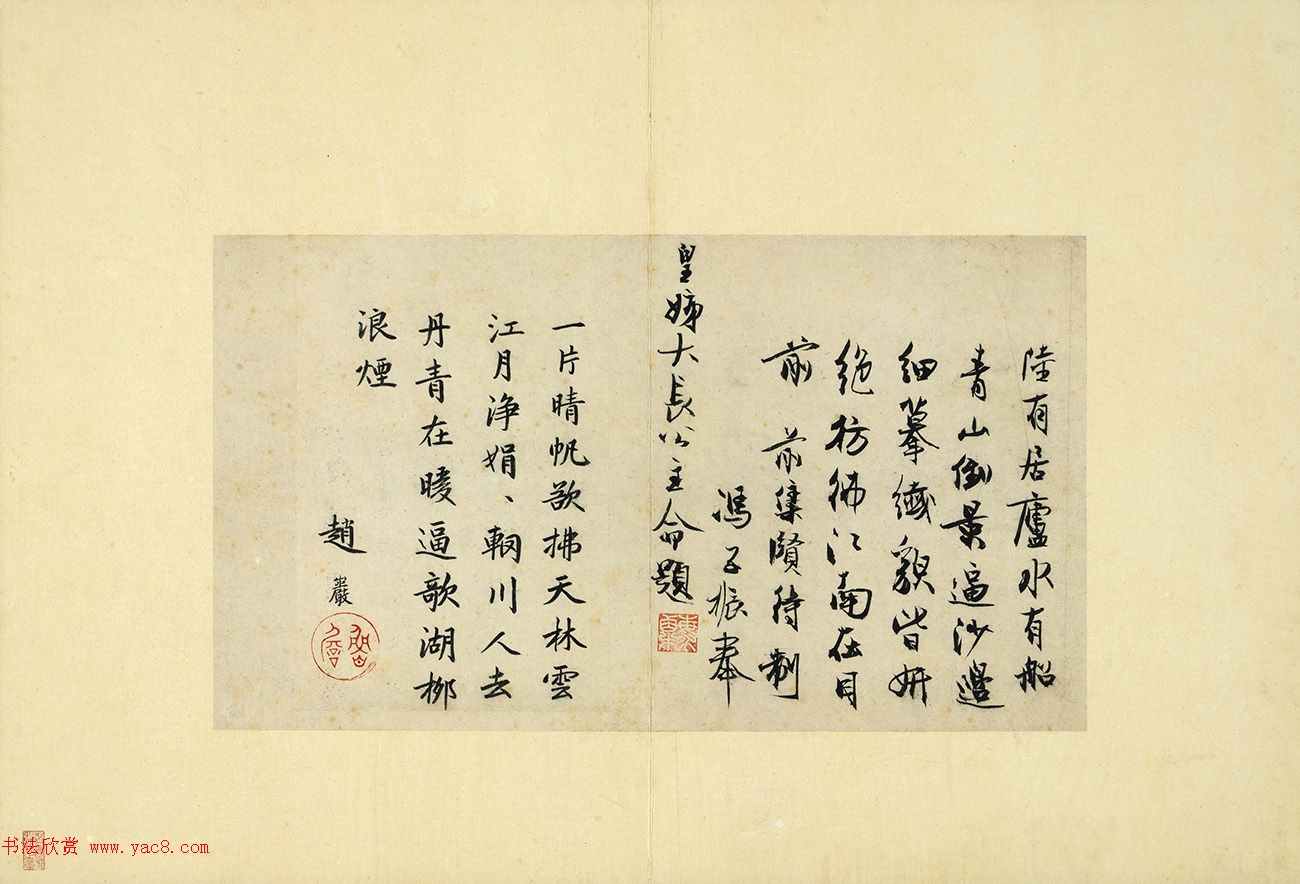 陸有居廬水有船
青山倒景逼沙邊
細摹纖貌皆妍
絕彷彿江南在目
前　前集賢待制
馮子振奉
皇姊大長公主命題
一片晴帆欲拂天林雲
江月淨娟、輞川人去
丹青在暖逼歌湖柳
浪煙
趙
巖
书法欣赏 www.yac8.com